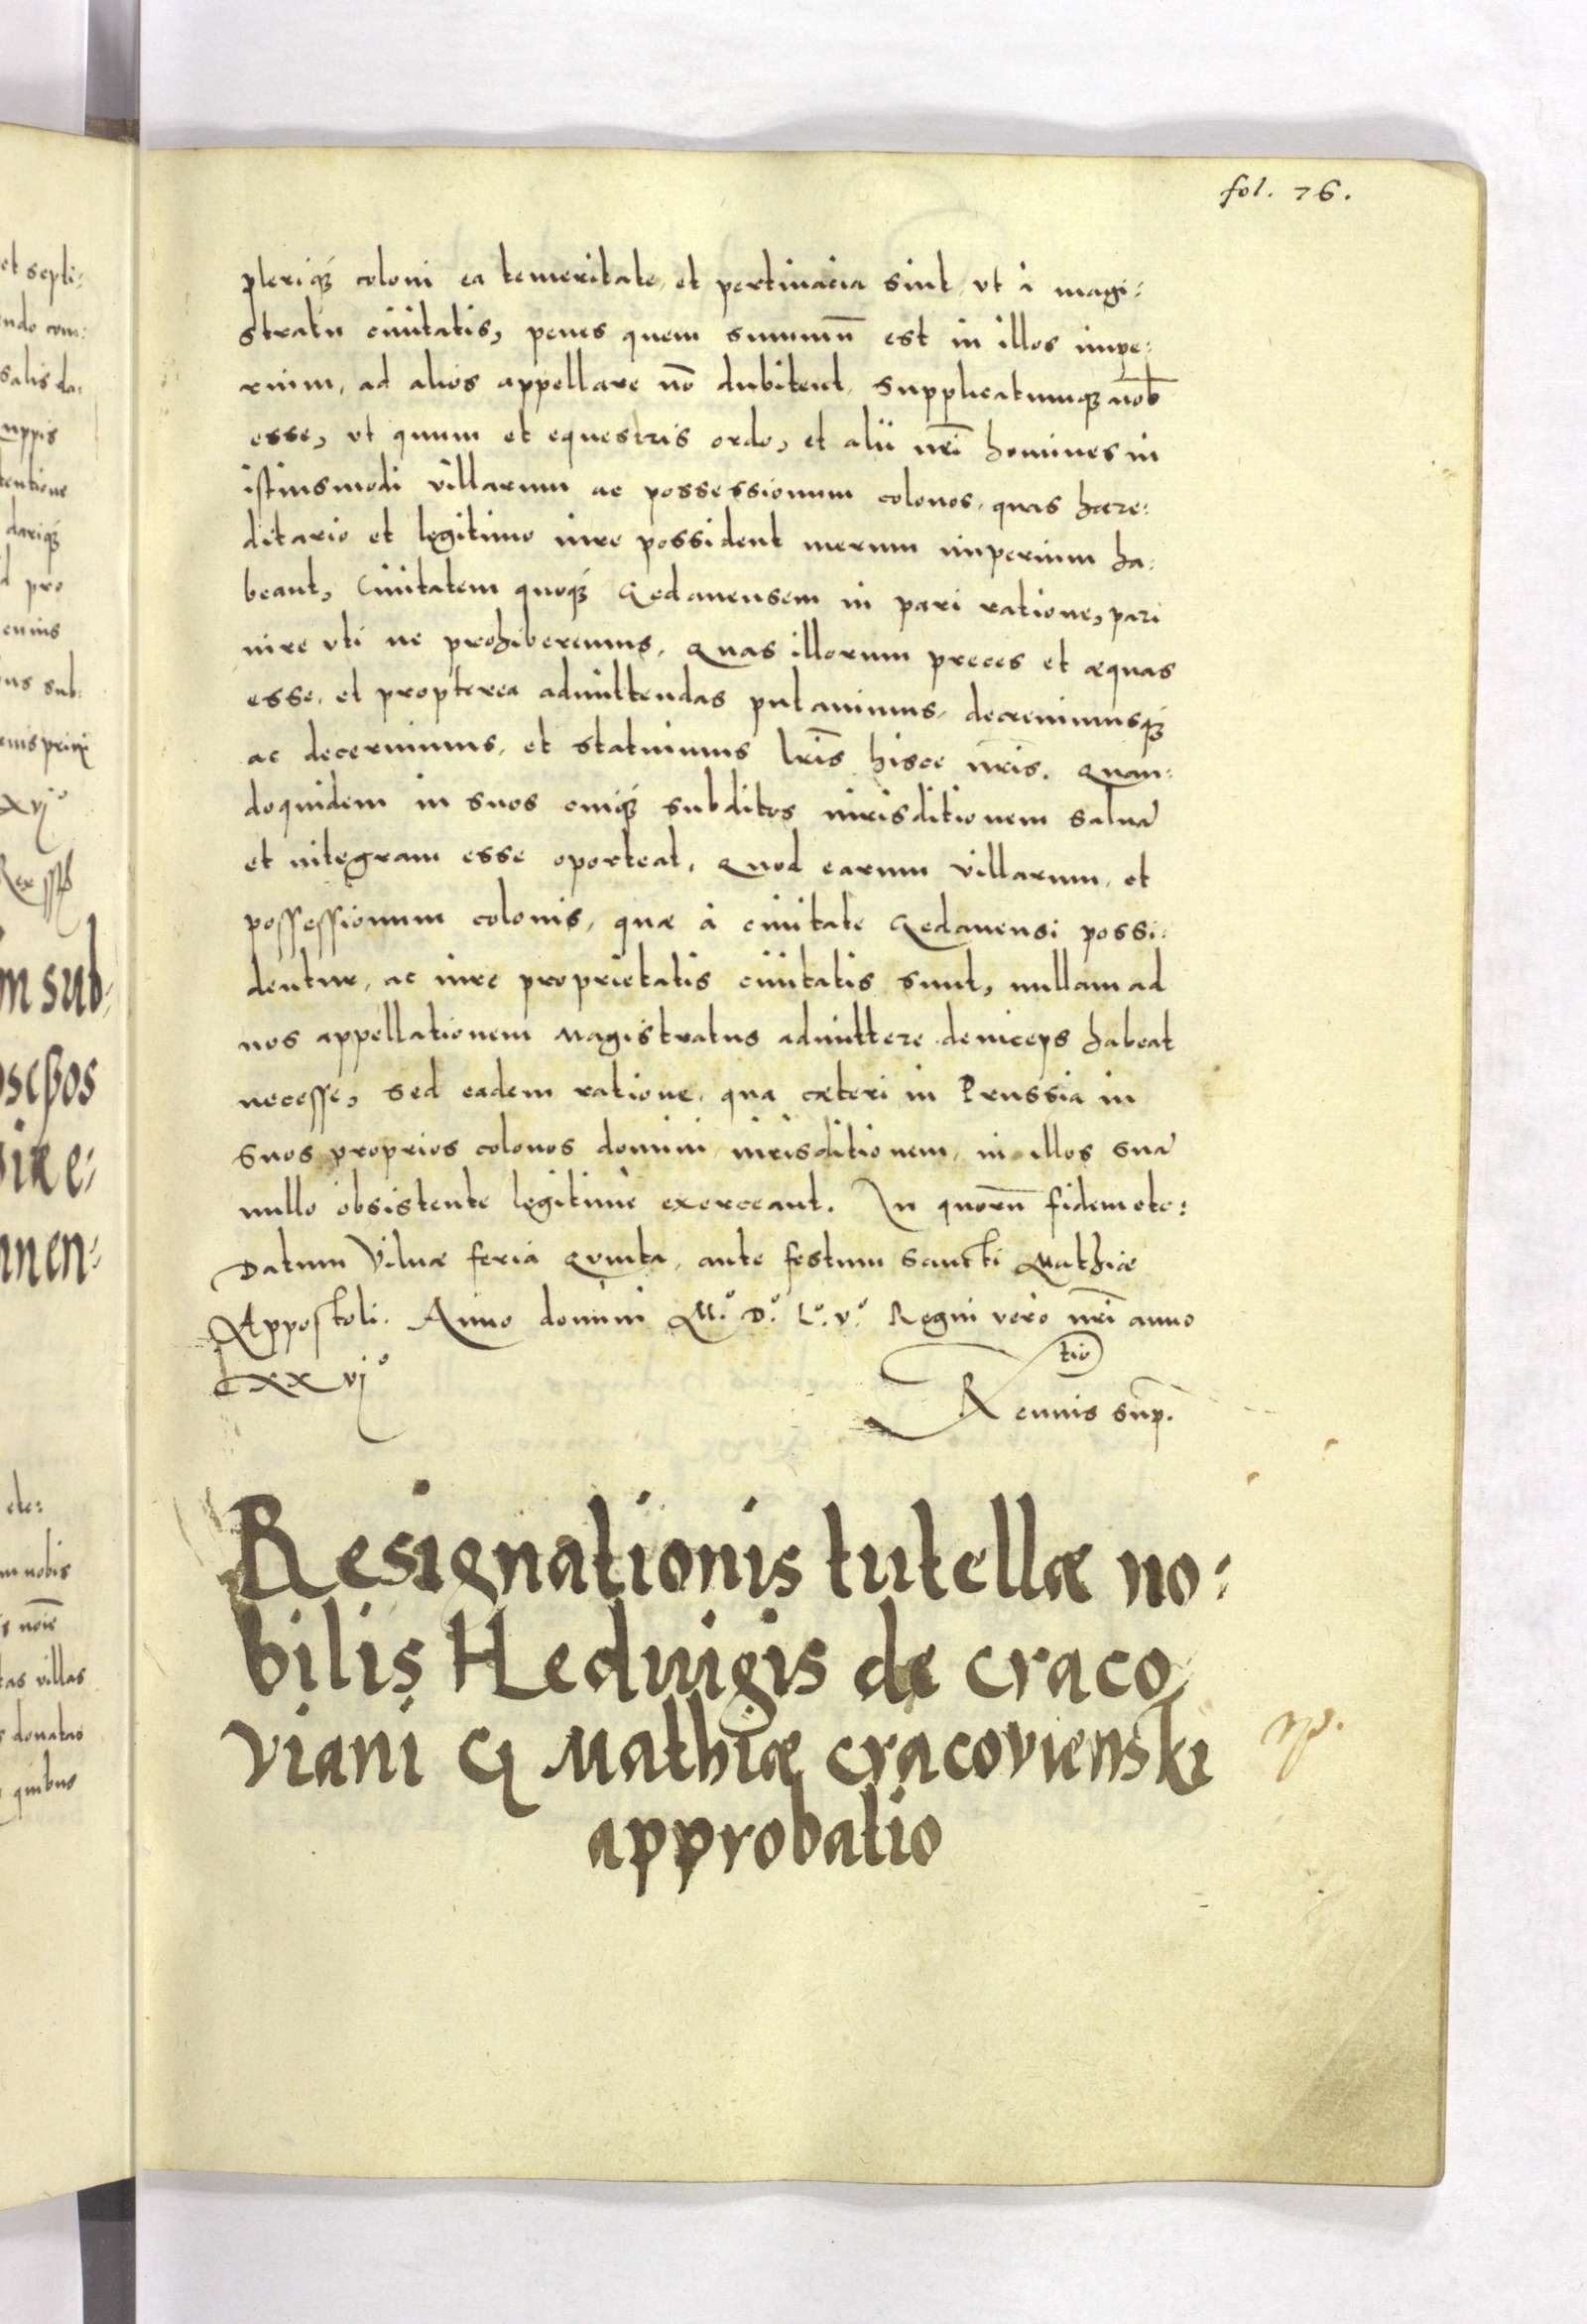 fol. 76.
pleriq́ꝫ coloni ea temeritate, et pertinacia sint, vt à magi:
stratu ciuitatis, penes quem summū est in illos impe:
rium, ad alios appellare nō dubitent, supplicatumqꝫ nōb
esse, vt quum et equestris ordo, et alii nr̄i homines in
istiusmodi villarum ac possessionum colonos, quas hære:
ditario et legitimo iure possident merum imperium ha:
beant, Ciuitatem quoq́ꝫ Gedanensem in pari ratione, pari
iure vti ne prohiberemus. Quas illorum preces et æquas
esse, et propterea admittendas putauimus, decreuimusq́ꝫ
ac decernimus, et statuimus lr̄is hisce nr̄is. Quan:
doquidem in suos cuiq́ꝫ subditos iurisditionem saluā
et integram esse oporteat, Quod earum villarum, et
possessionum colonis, quæ à ciuitate Gedanensi possi:
dentur, ac iure proprietatis ciuitatis sunt, nullam ad
nos appellationem Magistratus admittere deinceps habeat
necesse, sed eadem ratione, qua cæteri in Prussia in
suos proprios colonos domini iurisditionem, in illos suā
nullo obsistente legitimè exerceant. In quorū fidem etc:
Datum Vilnæ feria Quinta, ante festum Sancti Mathiæ
Appostoli. Anno domini M.º D.º L.º v.º Regni vero nr̄i anno
xxvjº
R<sup>tio</sup> eiuis sup.
Resignationis tutellæ no:
bilis Heduigis de craco
viani G Mathiæ cracovienski
approbatio